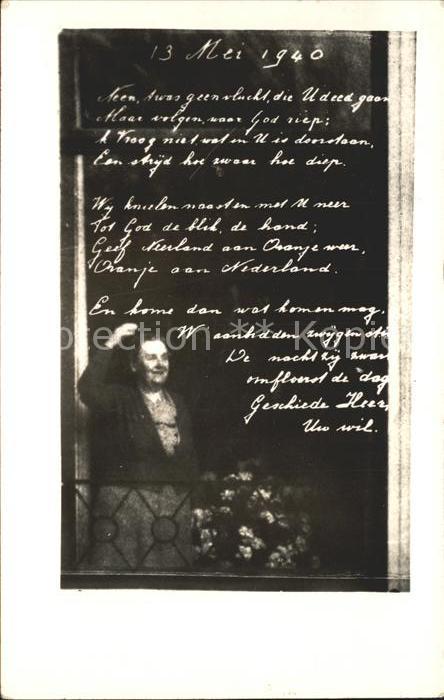 13 Mei 1940
Neen, 't was geen vlucht, die U deed gaan
Maar volgen, waar God riep;
'k Vroog niet, wat en U is doorstaan,
Een strijd hoe zwaar hoe diep.
Wij knielen naast en met U neer
Tot God de blik, de hand;
Geef Neerland aan Oranje weer,
Oranje aan Nederland.
En kome dan wat komen mag,
W' aanbidden zwijgen stil
De nacht zij zwart
omfloerst de dag
Geschiede Heer,
Uw wil.